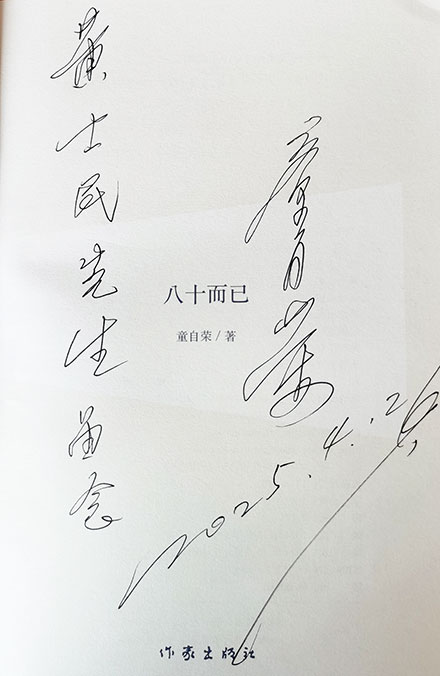 黄士民先生留念
童自荣
2025.4.26
八十而已
童自荣/著
作家出版社